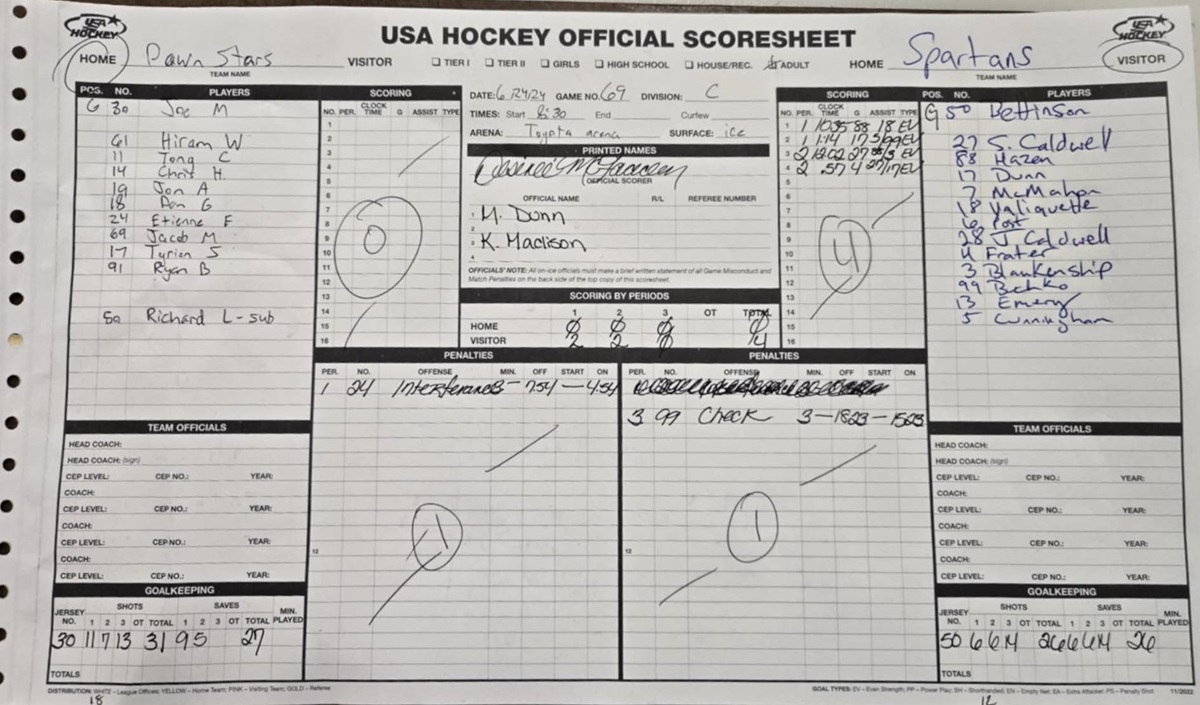 USA HOCKEY
USA HOCKEY OFFICIAL SCORESHEET
USA HOCKEY
HOME Dawn Stars VISITOR
TEAM NAME
☐ TIER I ☐ TIER II ☐ GIRLS ☐ HIGH SCHOOL ☐ HOUSE/REC. ☐ ADULT
HOME Spartans VISITOR
TEAM NAME
POS. NO. PLAYERS
G 30 Joe M
61 Hiram W
11 Tong C
14 Chris H.
19 Jon A
18 Ben G
24 Etienne F
69 Jacob M
17 Tyrien S
91 Ryan B
50 Richard L-sub
SCORING
NO. PER. CLOCK TIME G ASSIST TYPE
1
2
3
4
5
6
7
8
9
10
11
12
13
14
15
16
0
DATE: 6/24/24 GAME NO. 69 DIVISION: C
TIMES: Start 8:30 End Curfew
ARENA: Toyota arena SURFACE: ice
PRINTED NAMES
(OFFICIAL SCORER)
OFFICIAL NAME R/L REFEREE NUMBER
1 M. Donn
2
3 K. Madison
4
OFFICIALS' NOTE: All on-ice officials must make a brief written statement of all Game Misconduct and
Match Penalties on the back side of the top copy of this scoresheet.
SCORING BY PERIODS
1 2 3 OT TOTAL
HOME 0 0 0 0
VISITOR 2 2 0 4
SCORING
NO. PER. CLOCK TIME G ASSIST TYPE
1 1 10:35 88 18 EV
2 1 1:14 17 5/99 EV
3 2 12:02 27 88/3 EV
4 2 .57 4 27/17 EV
5
6
7
8
9
10
11
12
13
14
15
16
4
POS. NO. PLAYERS
G 50 Bettinson
27 S. Caldwell
88 Hazen
17 Dunn
7 McMahon
18 Valiquette
6 Post
28 J Caldwell
4 Frater
3 Blankenship
99 Behko
13 Emery
5 Cunningham
PENALTIES
PER. NO. OFFENSE MIN. OFF START ON
1 24 Interference 3 - 7:54 - 4:54
12
1
PENALTIES
PER. NO. OFFENSE MIN. OFF START ON
3 99 Check 3 - 1823 - 1523
12
1
TEAM OFFICIALS
HEAD COACH:
HEAD COACH: (sign)
CEP LEVEL: CEP NO.: YEAR:
COACH:
CEP LEVEL: CEP NO.: YEAR:
COACH:
CEP LEVEL: CEP NO.: YEAR:
COACH:
CEP LEVEL: CEP NO.: YEAR:
GOALKEEPING
JERSEY NO. SHOTS 1 2 3 OT TOTAL SAVES 1 2 3 OT TOTAL MIN. PLAYED
30 11 7 13 31 9 5 27
TOTALS
TEAM OFFICIALS
HEAD COACH:
HEAD COACH: (sign)
CEP LEVEL: CEP NO.: YEAR:
COACH:
CEP LEVEL: CEP NO.: YEAR:
COACH:
CEP LEVEL: CEP NO.: YEAR:
COACH:
CEP LEVEL: CEP NO.: YEAR:
GOALKEEPING
JERSEY NO. SHOTS 1 2 3 OT TOTAL SAVES 1 2 3 OT TOTAL MIN. PLAYED
50 6 6 14 26 6 6 14 26
TOTALS
DISTRIBUTION: WHITE – League Offices; YELLOW – Home Team; PINK – Visiting Team; GOLD – Referee
GOAL TYPES: EV – Even Strength; PP – Power Play; SH – Shorthanded; EN – Empty Net; EA – Extra Attacker; PS – Penalty Shot 11/2022
18
12